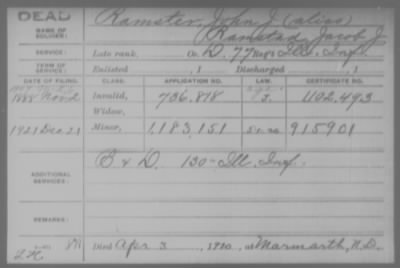 DEAD
NAME OF SOLDIER: Ramster, John J (alias)
Ramstad, Jacob J
SERVICE: Late rank, Co. D, 77 Reg't Ill. Inf.
TERM OF SERVICE: Enlisted , 1 Discharged , 1
DATE OF FILING. CLASS. APPLICATION NO. LAW. CERTIFICATE NO.
1888 Invalid, 736.818 J. 402.493
Widow,
1921 Dec. 21 Minor, 1,183,151 915901
ADDITIONAL SERVICES: B & D. 130 Ill. Inf.
REMARKS:
Died Apr 3, 1920, at Marmarth, N.D.